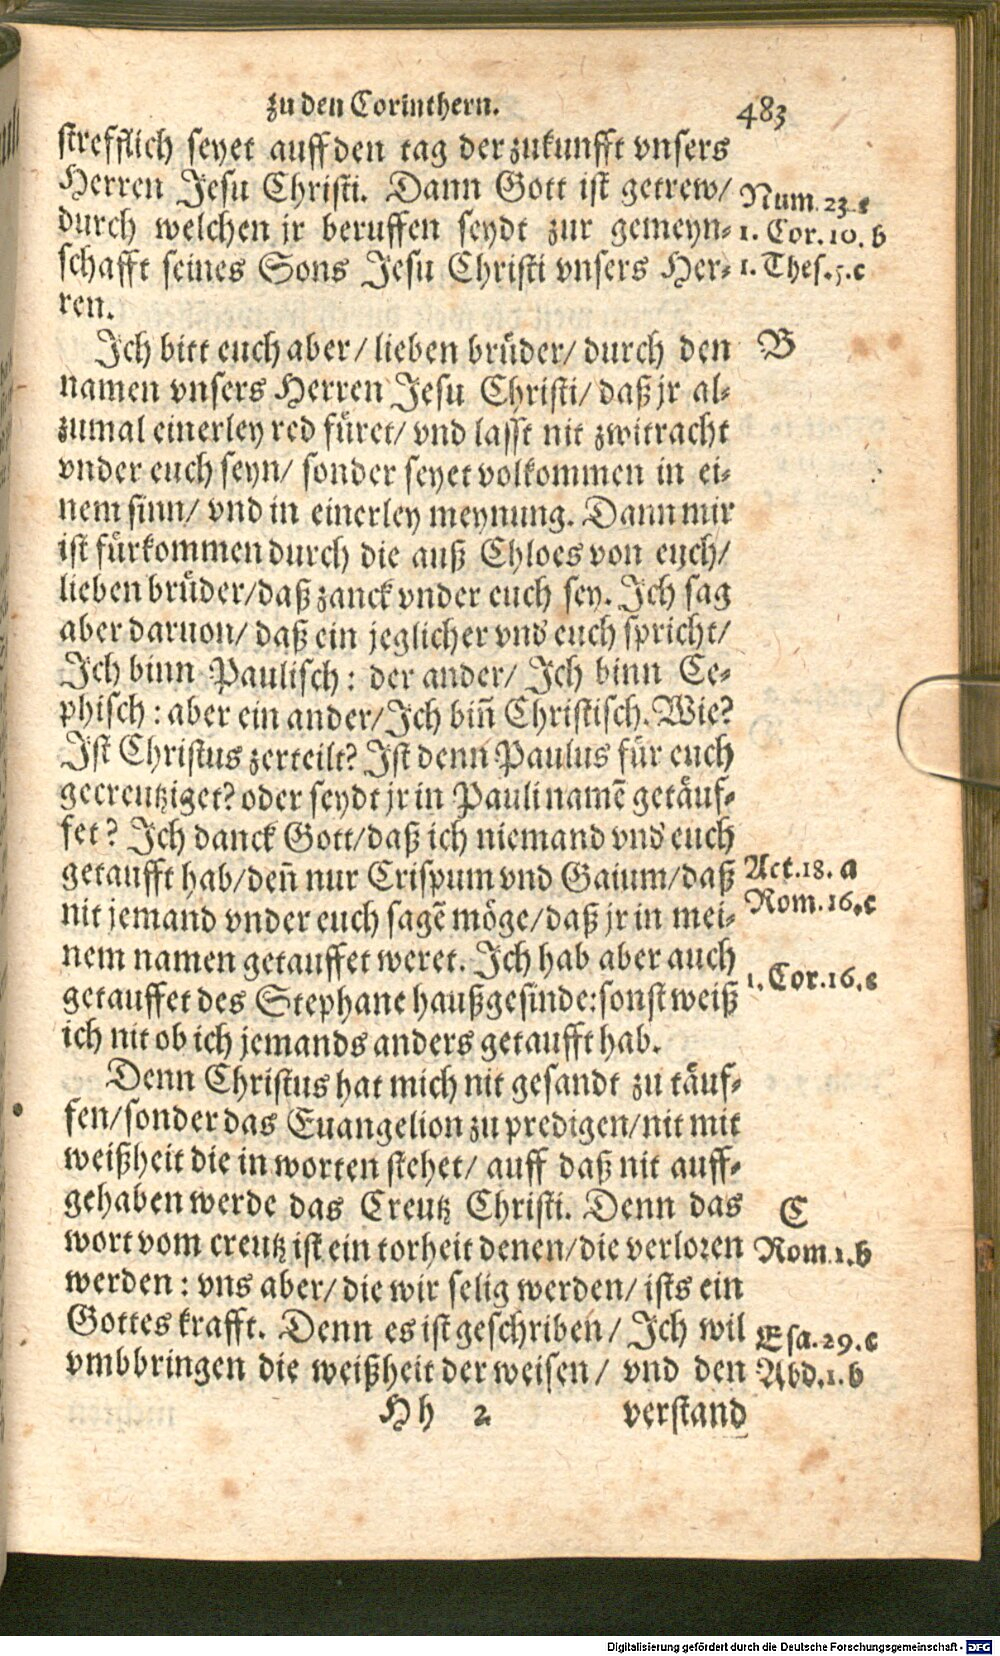 zu den Corinthern. 483
strefflich seyet auff den tag der zukunfft vnsers
Herren Jesu Christi. Dann Gott ist getrew/ Num. 23. c
durch welchen jr beruffen seydt zur gemeyn⸗ 1. Cor. 10. b
schafft seines Sons Jesu Christi vnsers Her⸗ 1. Thes. 5. c
ren.
Ich bitt euch aber/ lieben brüder/ durch den B
namen vnsers Herren Jesu Christi/ daß jr al⸗
zumal einerley red füret/ vnd lasst nit zwitracht
vnder euch seyn/ sonder seyet volkommen in ei⸗
nem sinn/ vnd in einerley meynung. Dann mir
ist fürkommen durch die auß Chloes von euch/
lieben brüder/ daß zanck vnder euch sey. Ich sag
aber daruon/ daß ein jeglicher vnd euch spricht/
Ich binn Paulisch: der ander/ Ich binn Ce⸗
phisch: aber ein ander/ Ich biñ Christisch. Wie?
Ist Christus zerteilt? Ist denn Paulus für euch
gecreutziget? oder seydt jr in Pauli namẽ getäuf⸗
fet? Ich danck Gott/ daß ich niemand vnd euch
getaufft hab/ deñ nur Crispum vnd Gaium/ daß Act. 18. a
nit jemand vnder euch sagẽ möge/ daß jr in mei⸗ Rom. 16. c
nem namen getauffet weret. Ich hab aber auch
getauffet des Stephane haußgesinde: sonst weiß 1. Cor. 16. c
ich nit ob ich jemands anders getaufft hab.
Denn Christus hat mich nit gesandt zu täuf⸗
fen/ sonder das Euangelion zu predigen/ nit mit
weißheit die in worten stehet/ auff daß nit auff⸗
gehaben werde das Creutz Christi. Denn das C
wort vom creutz ist ein torheit denen/ die verloren Rom. 1. b
werden: vns aber/ die wir selig werden/ ists ein
Gottes krafft. Denn es ist geschriben/ Ich wil Esa. 29. c
vmbbringen die weißheit der weisen/ vnd den Abd. 1. b
Hh 2 verstand
Digitalisierung gefördert durch die Deutsche Forschungsgemeinschaft - DFG